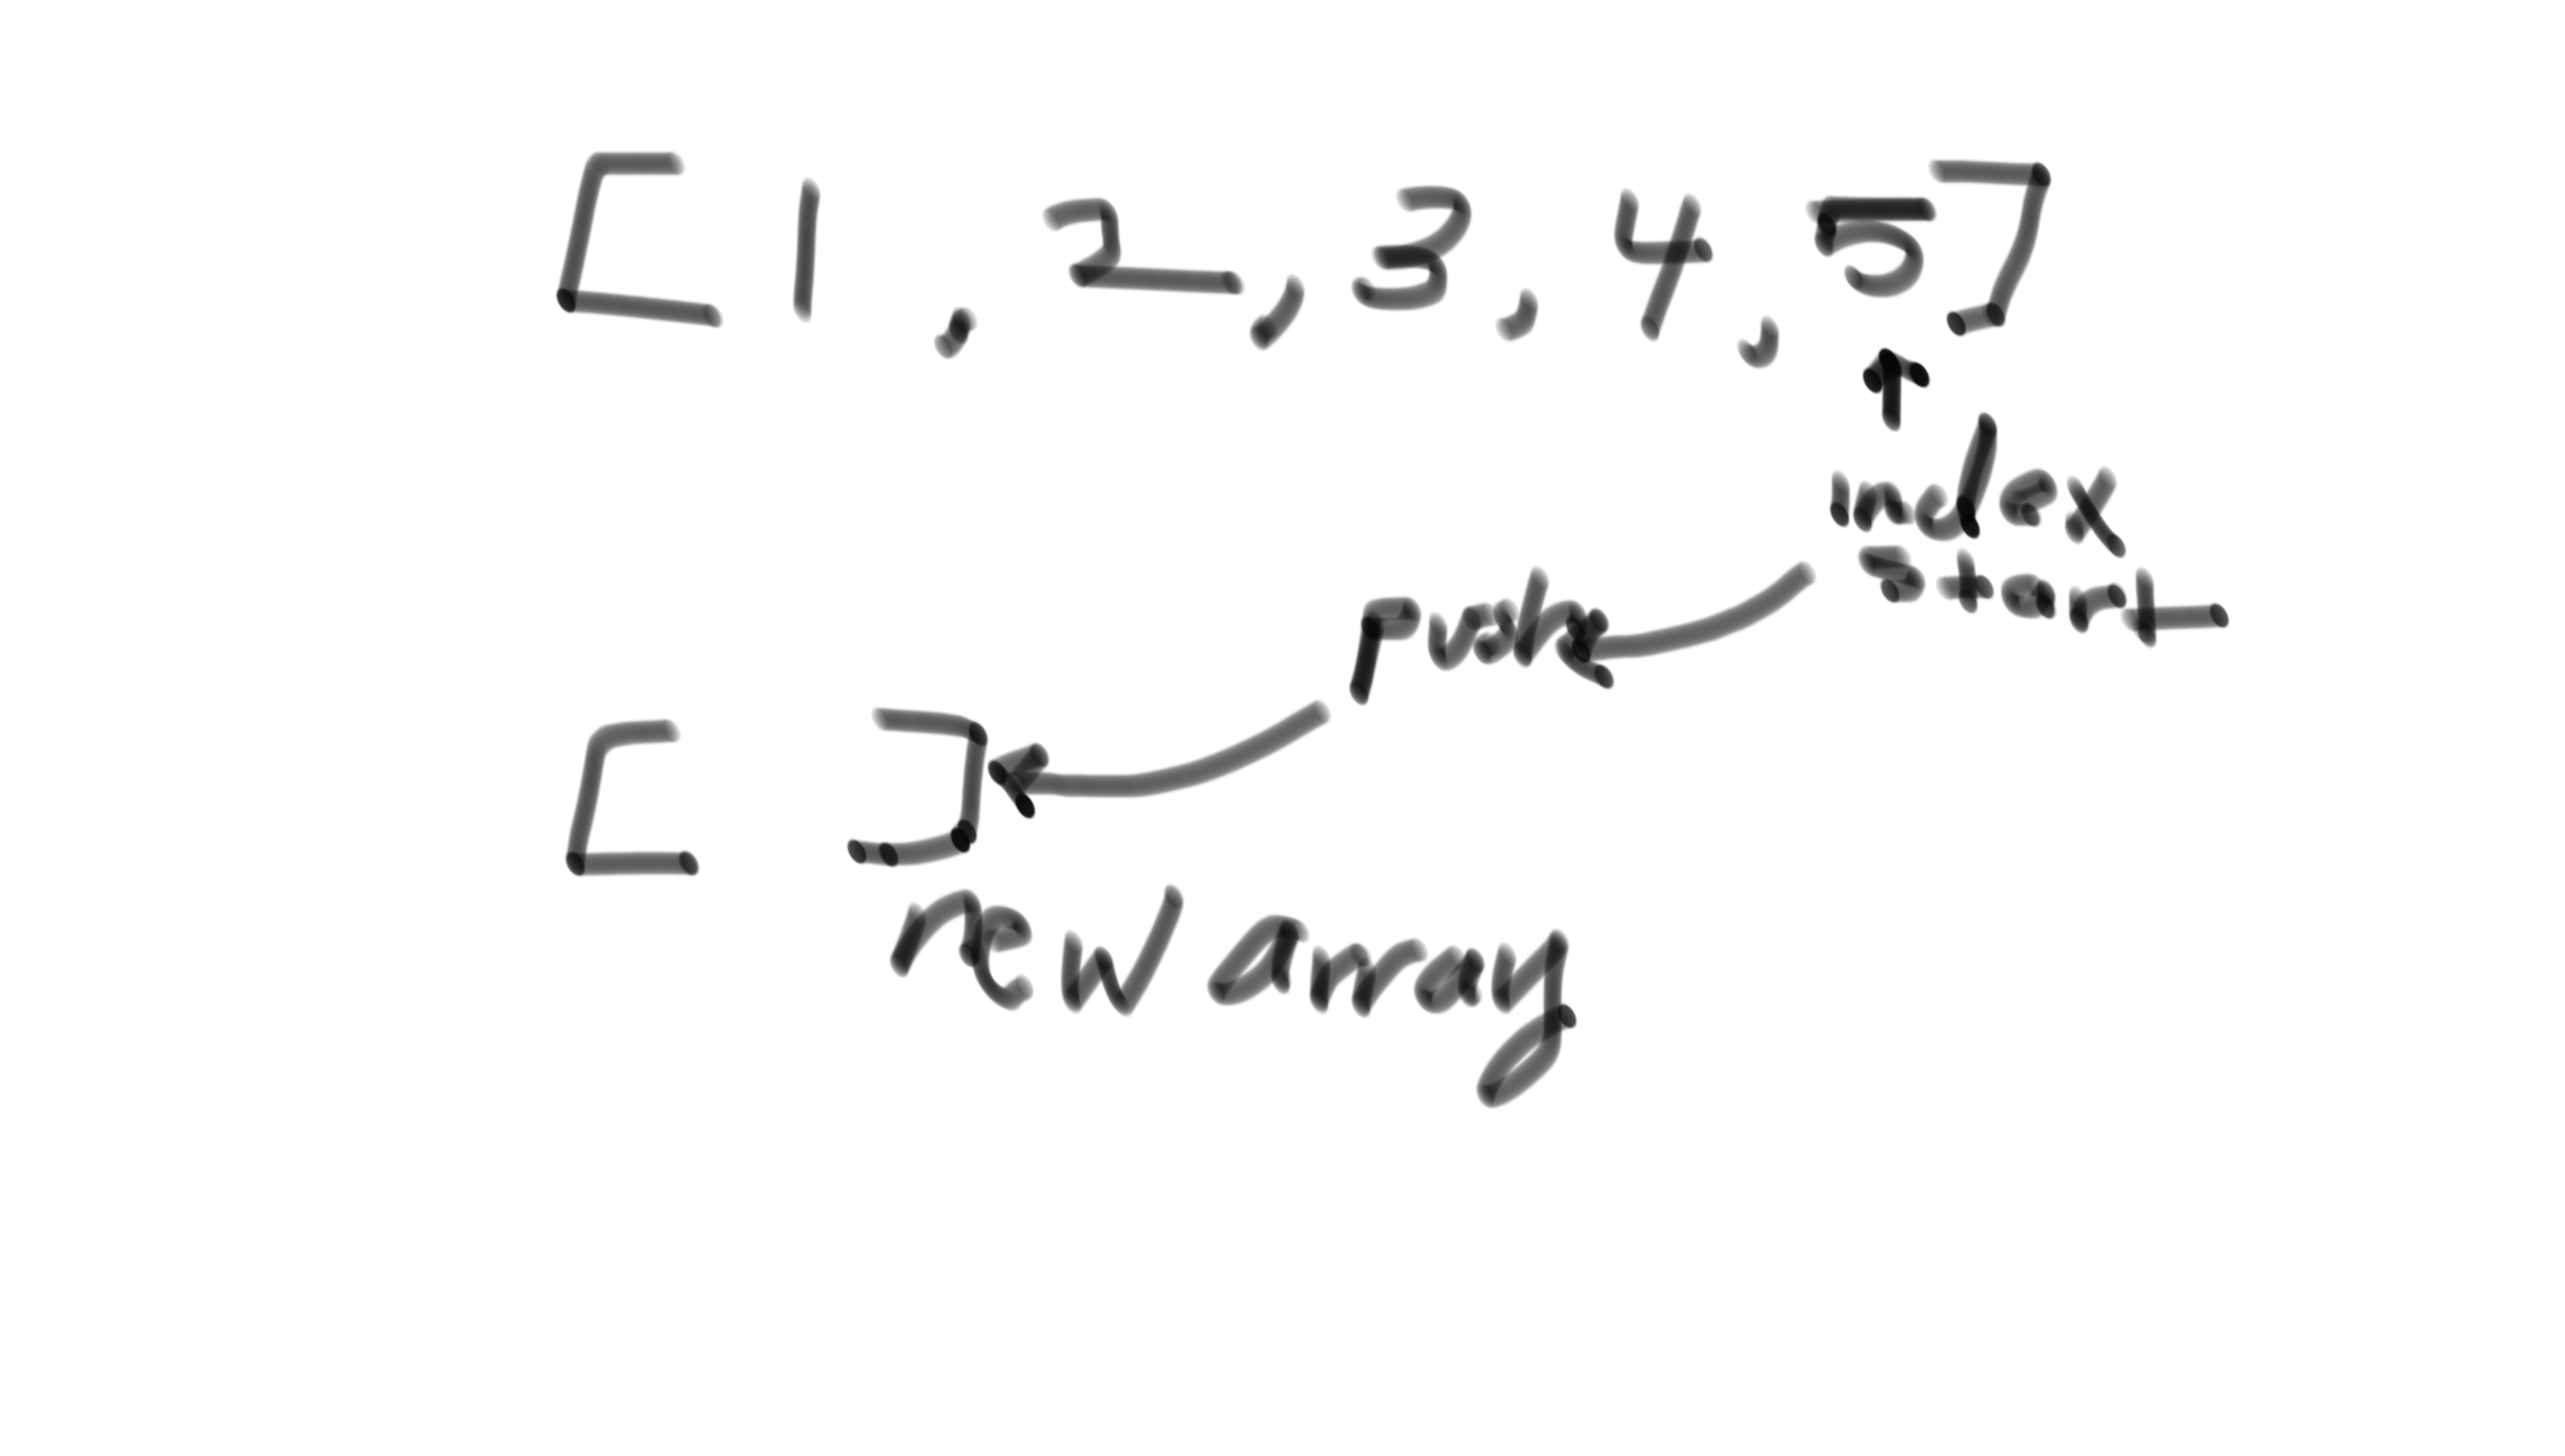 [1, 2, 3, 4, 5]
index
start
push
[ ]
new array